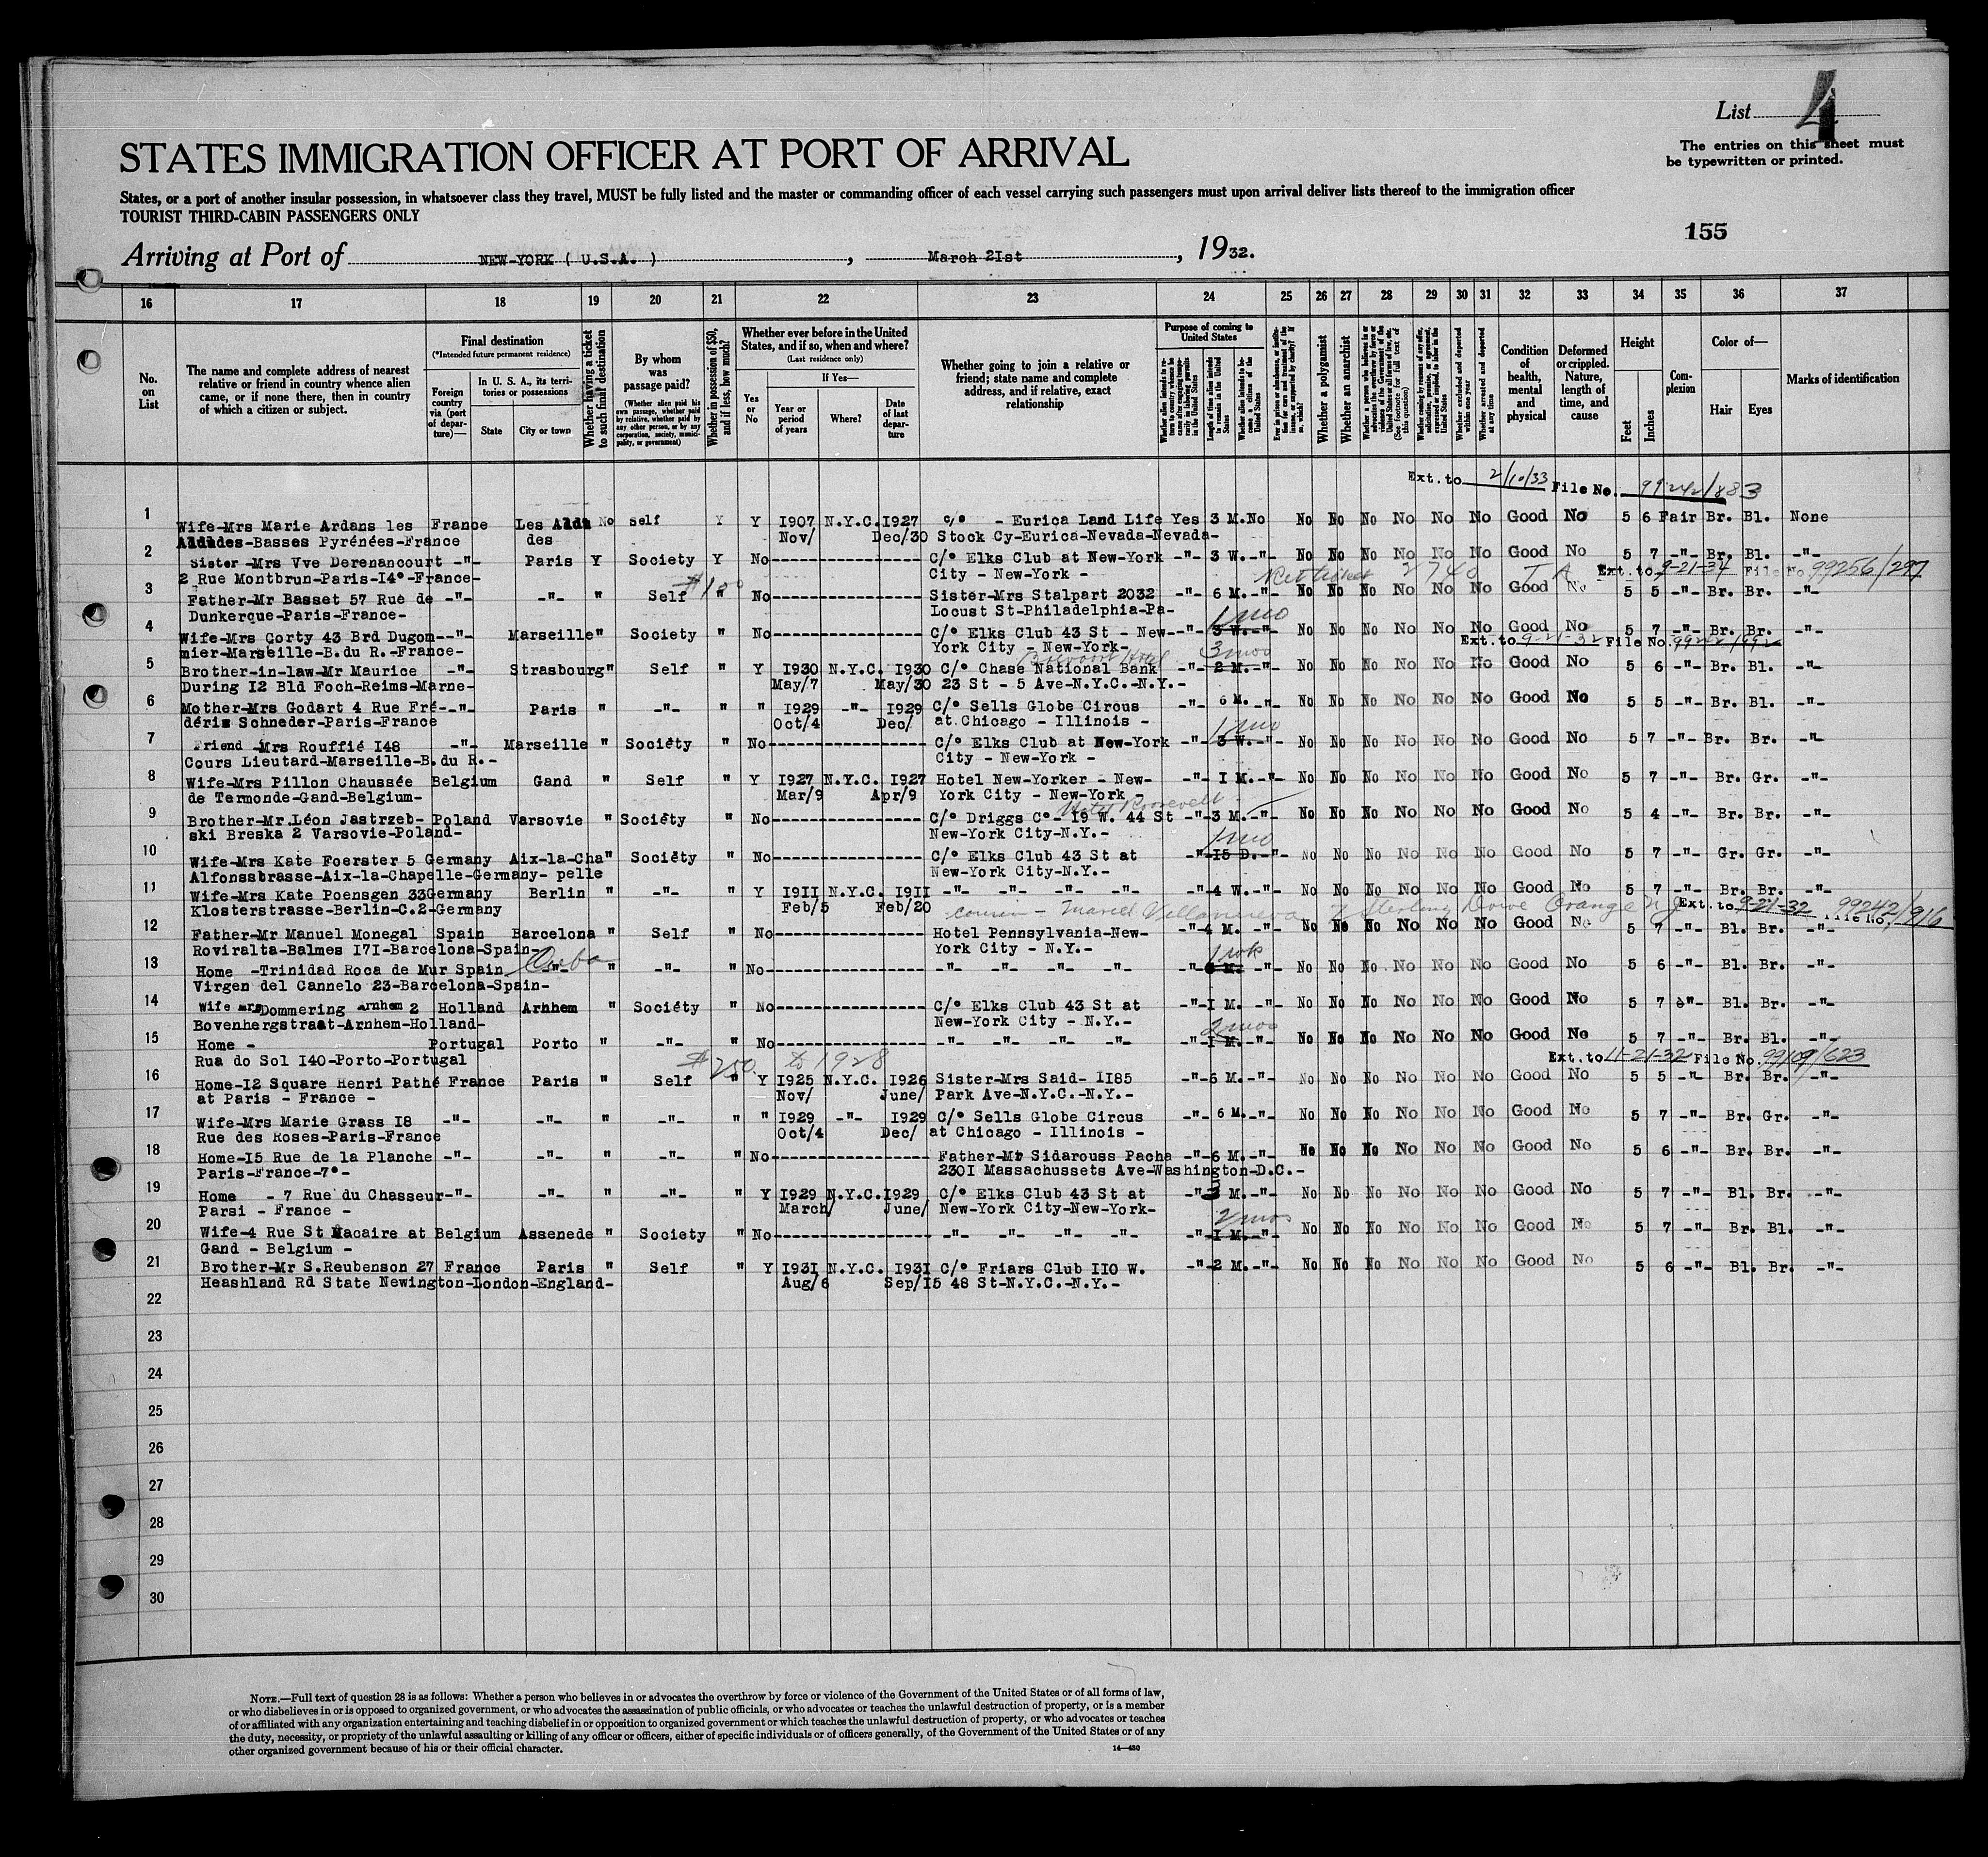 List 4
The entries on this sheet must
be typewritten or printed.
STATES IMMIGRATION OFFICER AT PORT OF ARRIVAL
States, or a port of another insular possession, in whatsoever class they travel, MUST be fully listed and the master or commanding officer of each vessel carrying such passengers must upon arrival deliver lists thereof to the immigration officer
TOURIST THIRD-CABIN PASSENGERS ONLY
155
Arriving at Port of NEW-YORK ( U.S.A. ) , March 2Ist , 1932.
16 17 18 19 20 21 22 23 24 25 26 27 28 29 30 31 32 33 34 35 36 37
No. on List
The name and complete address of nearest relative or friend in country whence alien came, or if none there, then in country of which a citizen or subject.
Final destination
(*Intended future permanent residence)
Foreign country via (port of departure)—
In U. S. A., its territories or possessions
State
City or town
Whether having a ticket to such final destination
By whom was passage paid?
(Whether alien paid his own passage, whether paid by relative, whether paid by any other person, or by any corporation, society, municipality, or government)
Whether in possession of $50, and if less, how much?
Whether ever before in the United States, and if so, when and where?
(Last residence only)
Yes or No
If Yes—
Year or period of years
Where?
Date of last departure
Whether going to join a relative or friend; state name and complete address, and if relative, exact relationship
Purpose of coming to United States
Whether alien intends to return to country whence he came after engaging temporarily in laboring pursuits in the United States
Length of time alien intends to remain in the United States
Whether alien intends to become a citizen of the United States
Ever in prison or almshouse, or institution for care and treatment of the insane, or supported by charity? If so, which?
Whether a polygamist
Whether an anarchist
Whether a person who believes in or advocates the overthrow by force or violence of the Government of the United States or of all forms of law, etc. (See footnote for full text of this question)
Whether coming by reason of any offer, solicitation, promise, or agreement, expressed or implied, to labor in the United States
Whether excluded and deported within one year
Whether arrested and deported at any time
Condition of health, mental and physical
Deformed or crippled. Nature, length of time, and cause
Height
Feet
Inches
Complexion
Color of—
Hair
Eyes
Marks of identification
Ext. to 2/10/33 File No. 99242/883
1 Wife-Mrs Marie Ardans les France Les Aldu No Self Y Y I907 N.Y.C. I927 c/o - Eurica Land Life Yes 3 M. No No No No No No No Good No 5 6 Fair Br. Bl. None
Aldudes-Basses Pyrénées-France des Nov/ Dec/30 Stock Cy-Eurica-Nevada-Nevada-
2 Sister -Mrs Vve Derenancourt -"- Paris Y Society Y No- C/o Elks Club at New-York -"- 3 W. -"- No No No No No No Good No 5 7 -"- Br. Bl. -"-
2 Rue Montbrun-Paris-I4°-France- City - New-York - Ext. to 9-21-34 File No 99256/297
$100
3 Father-Mr Basset 57 Rue de -"- -"- " Self " No- Sister-Mrs Stalpart 2032 -"- 6 M. -"- No No No No No No Good No 5 5 -"- Br. Br. -"-
Dunkerque-Paris-France- Locust St-Philadelphia-Pa-
1 mo
4 Wife-Mrs Corty 43 Brd Dugom- -"- Marseille " Society " No- C/o Elks Club 43 St - New- -"- 3 W. -"- No No No No No No Good No 5 7 -"- Br. Br. -"-
mier-Marseille-B.du R.-France- York City - New-York- Ext. to 9-21-32 File No.
3 mos
5 Brother-in-law-Mr Maurice -"- Strasbourg " Self " Y I930 N.Y.C. I930 C/o Chase National Bank -"- 2 M. -"- No No No No No No Good No 5 6 -"- Br. Bl. -"-
During I2 Bld Foch-Reims-Marne- May/7 May/30 23 St - 5 Ave-N.Y.C.-N.Y.-
6 Mother-Mrs Godart 4 Rue Fré- -"- Paris " -"- " " I929 -"- I929 C/o Sells Globe Circus -"- 6 M. -"- No No No No No No Good No 5 5 -"- Br. Bl. -"-
déric Schneder-Paris-France Oct/4 Dec/ at.Chicago - Illinois -
1 mo
7 Friend -Mrs Rouffié I48 -"- Marseille " Société " No- C/o Elks Club at New-York -"- 3 W. -"- No No No No No No Good No 5 7 -"- Br. Br. -"-
Cours Lieutard-Marseille-B.du R.- City - New-York -
8 Wife-Mrs Pillon Chaussée Belgium Gand " Self " Y I927 N.Y.C. I927 Hotel New-Yorker - New- -"- I M. -"- No No No No No No Good No 5 7 -"- Br. Gr. -"-
de Termonde-Gand-Belgium- Mar/9 Apr/9 York City - New-York -
Hotel Roosevelt
9 Brother-Mr.Léon Jastrzeb- Poland Varsovie " Société " No- C/o Driggs C° - I9 W. 44 St -"- 3 M. -"- No No No No No No Good No 5 4 -"- Br. Br. -"-
ski Breska 2 Varsovie-Poland- New-York City-N.Y.-
1 mo
10 Wife-Mrs Kate Foerster 5 Germany Aix-la-Cha " Société " No- C/o Elks Club 43 St at -"- I5 D. -"- No No No No No No Good No 5 7 -"- Gr. Gr. -"-
Alfonssbrasse-Aix-la-Chapelle-Germany- pelle New-York City-N.Y.-
11 Wife-Mrs Kate Poensgen 33 Germany Berlin " -"- " Y I9II N.Y.C. I9II -"- -"- -"- -"- -"- 4 W. -"- No No No No No No Good No 5 7 -"- Br. Br. -"-
Klosterstrasse-Berlin-C.2-Germany Feb/5 Feb/20
cousin - Marcel Villanueva 7 Sterling Drive Orange N J Ext. to 9-21-32 File No. 99242/916
12 Father-Mr Manuel Monegal Spain Barcelona " Self " No- Hotel Pennsylvania-New- -"- 4 M. -"- No No No No No No Good No 5 7 -"- Bl. Br. -"-
Roviralta-Balmes I7I-Barcelona-Spain- York City - N.Y.-
Cuba 1 wk
13 Home -Trinidad Roca de Mur Spain -"- " -"- " No- -"- -"- -"- -"- -"- M. -"- No No No No No No Good No 5 6 -"- Bl. Br. -"-
Virgen del Cannelo 23-Barcelona-Spain-
14 Wife mrs Dommering Arnhem 2 Holland Arnhem " Société " No- C/o Elks Club 43 St at -"- I M. -"- No No No No No No Good No 5 7 -"- Bl. Br. -"-
Bovenhergstraat-Arnhem-Holland- New-York City - N.Y.-
2 mos
15 Home - Portugal Porto " -"- " No- -"- -"- -"- -"- -"- I M. -"- No No No No No No Good No 5 7 -"- Br. Bl. -"-
Rua do Sol I40-Porto-Portugal Ext. to 11-21-32 File No. 99109/623
$250. to 1928
16 Home-I2 Square Henri Pathé France Paris " Self " Y I925 N.Y.C. I926 Sister-Mrs Said- II85 -"- 6 M. -"- No No No No No No Good No 5 5 -"- Br. Br. -"-
at Paris - France - Nov/ June/ Park Ave-N.Y.C.-N.Y.-
17 Wife-Mrs Marie Grass I8 -"- -"- " -"- " " I929 -"- I929 C/o Sells Globe Circus -"- 6 M. -"- No No No No No No Good No 5 7 -"- Br. Gr. -"-
Rue des Roses-Paris-France Oct/4 Dec/ at Chicago - Illinois -
18 Home-I5 Rue de la Planche -"- -"- " -"- " No- Father-Mr Sidarouss Pacha -"- 6 M. -"- No No No No No No Good No 5 6 -"- Br. Br. -"-
Paris-France-7°- 230I Massachussets Ave-Washington-D.C.-
19 Home - 7 Rue du Chasseur -"- -"- " -"- " Y I929 N.Y.C. I929 C/o Elks Club 43 St at -"- M. -"- No No No No No No Good No 5 7 -"- Bl. Br. -"-
Parsi - France - March/ June/ New-York City-New-York-
2 mos
20 Wife-4 Rue St Macaire at Belgium Assenede " Society " No- -"- -"- -"- -"- -"- I M. -"- No No No No No No Good No 5 7 -"- Br. Bl. -"-
Gand - Belgium -
21 Brother-Mr S.Reubenson 27 France Paris " Self " Y I93I N.Y.C. I93I C/o Friars Club II0 W. -"- 2 M. -"- No No No No No No Good No 5 6 -"- Bl. Br. -"-
Heashland Rd State Newington-London-England- Aug/6 Sep/I5 48 St-N.Y.C.-N.Y.-
22
23
24
25
26
27
28
29
30
NOTE.—Full text of question 28 is as follows: Whether a person who believes in or advocates the overthrow by force or violence of the Government of the United States or of all forms of law,
or who disbelieves in or is opposed to organized government, or who advocates the assassination of public officials, or who advocates or teaches the unlawful destruction of property, or is a member
of or affiliated with any organization entertaining and teaching disbelief in or opposition to organized government or which teaches the unlawful destruction of property, or who advocates or teaches
the duty, necessity, or propriety of the unlawful assaulting or killing of any officer or officers, either of specific individuals or of officers generally, of the Government of the United States or of any
other organized government because of his or their official character.
14—430